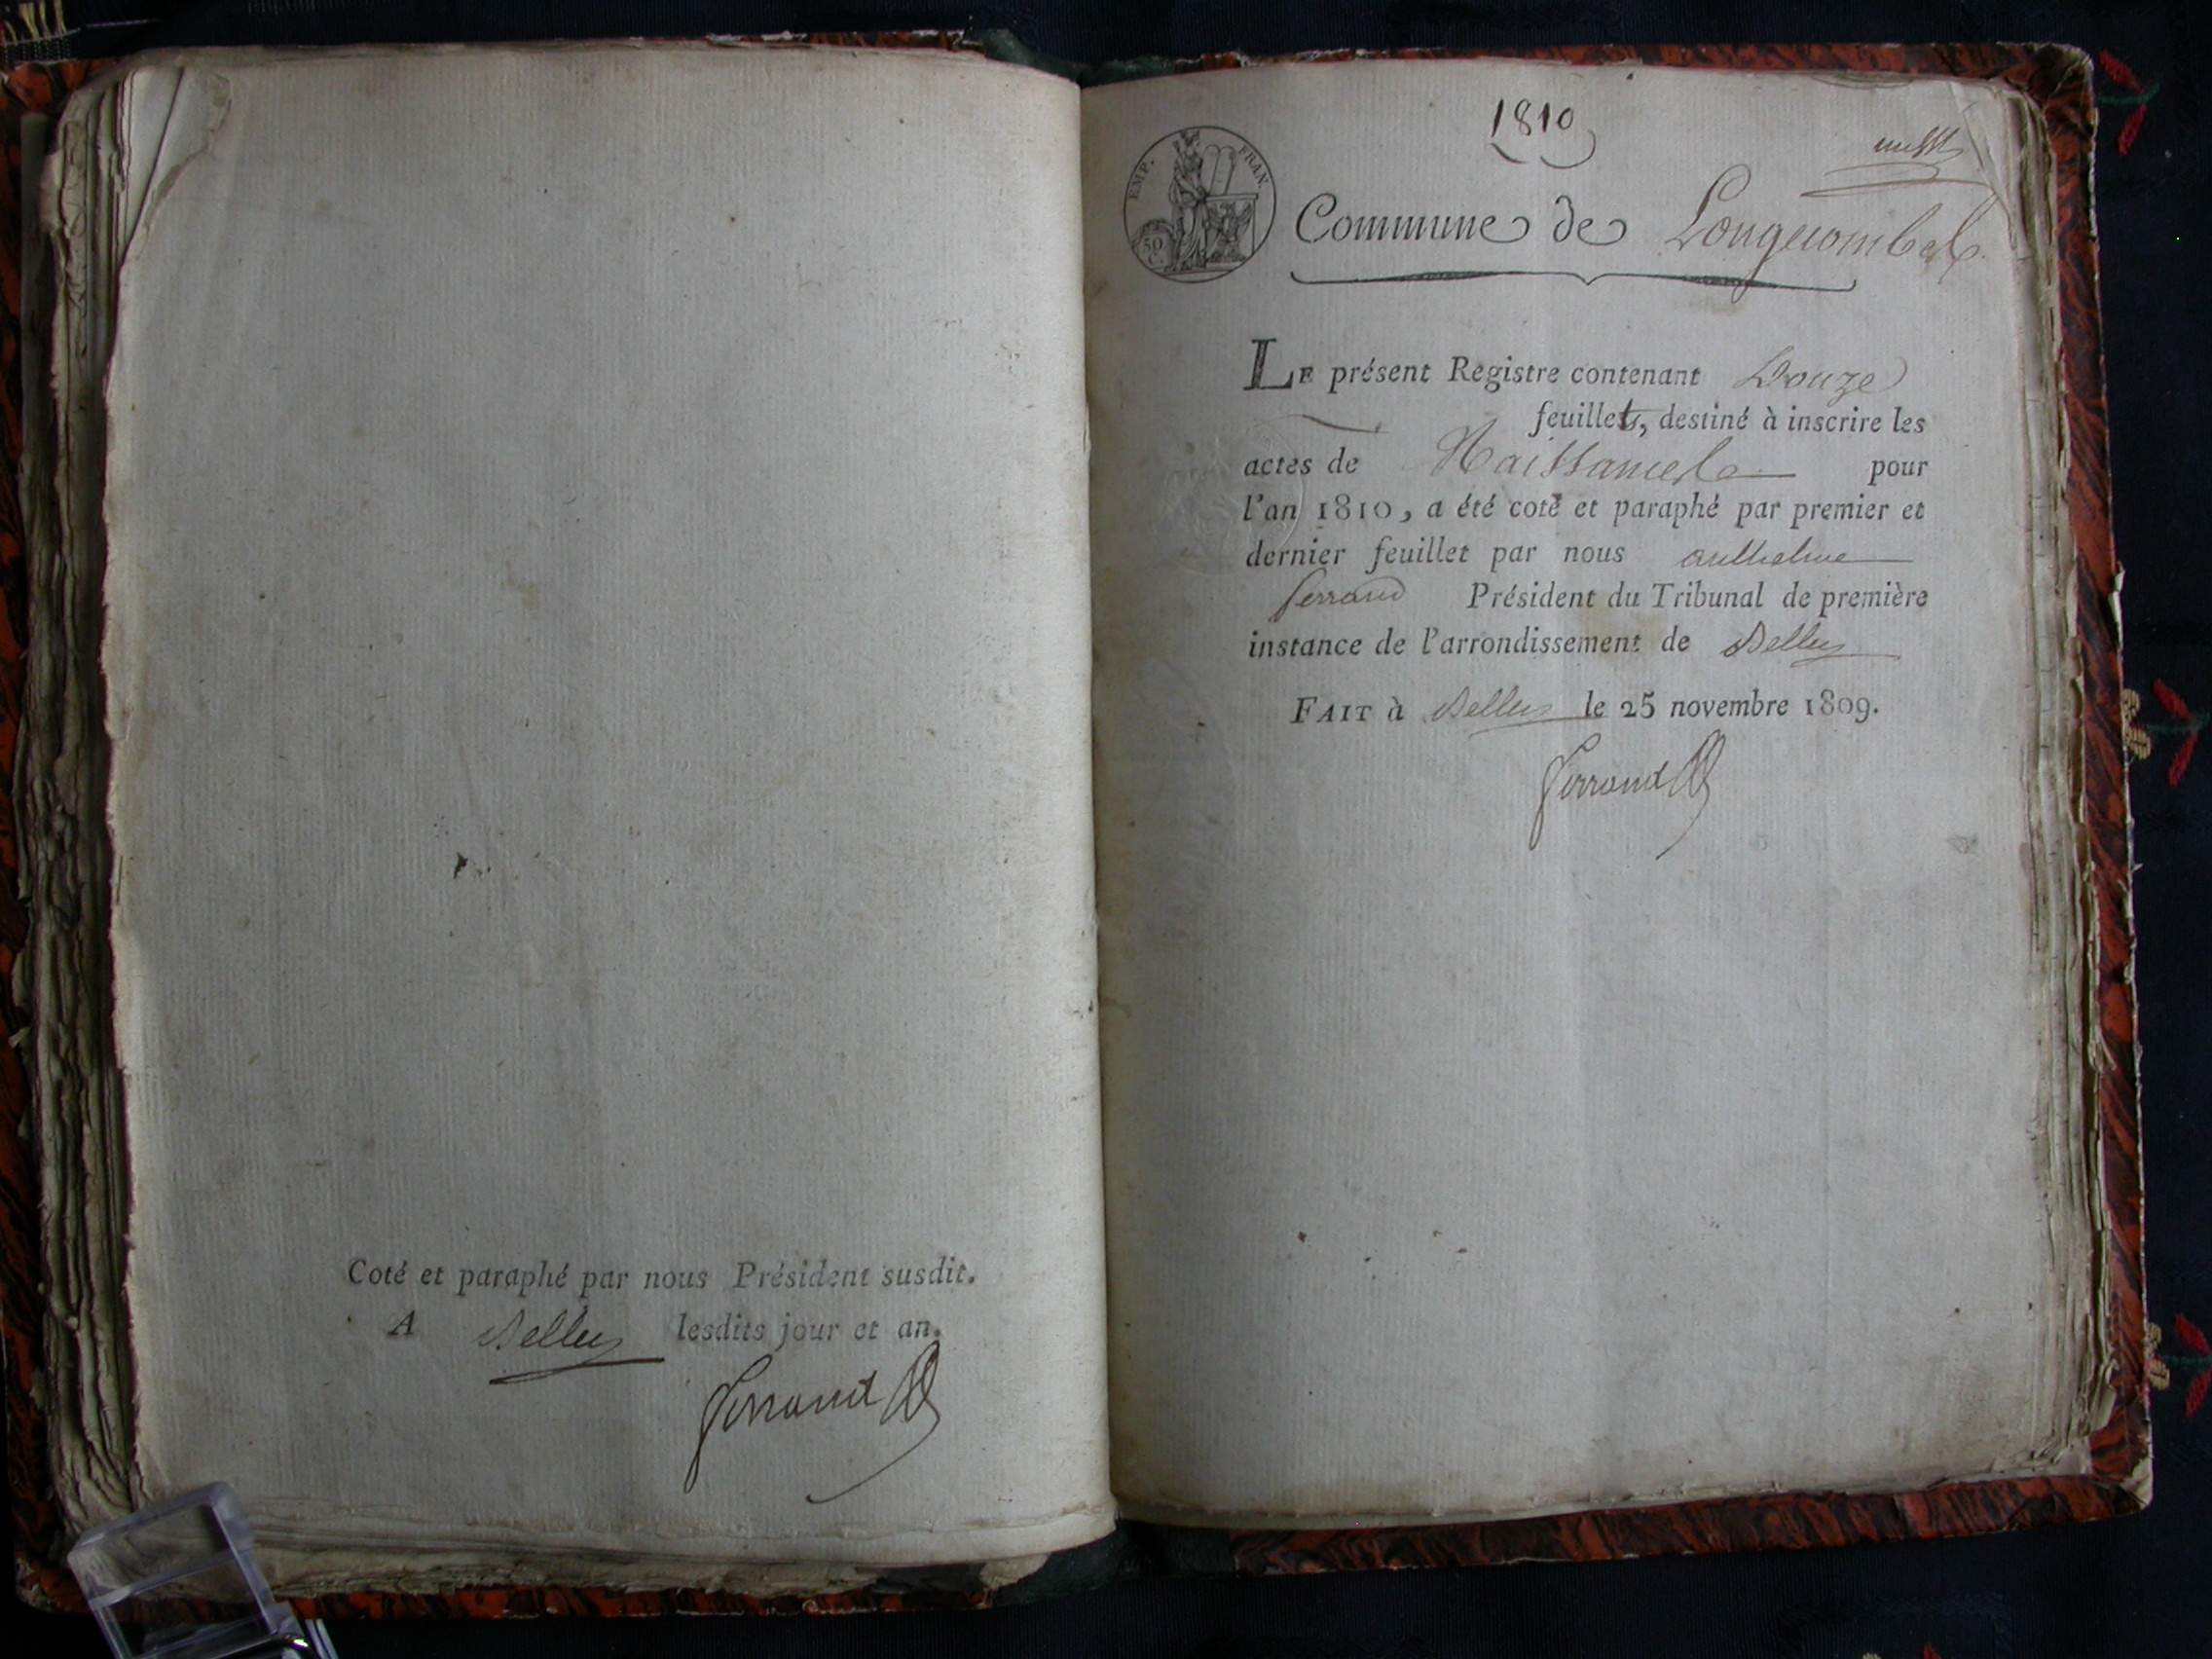 Coté et paraphé par nous Président susdit.
A Belley lesdits jour et an.
Ferrand
1810
EMP. FRAN.
50 C.
Commune de Longecombe
LE présent Registre contenant Douze
feuillets, destiné à inscrire les
actes de Naissance pour
l'an 1810, a été coté et paraphé par premier et
dernier feuillet par nous anthelme
ferrand Président du Tribunal de première
instance de l'arrondissement de Belley
FAIT à Belley le 25 novembre 1809.
Ferrand